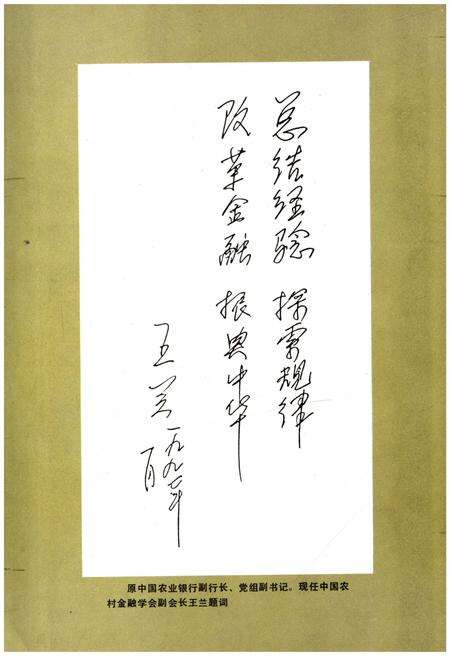 总结经验 探索规律
改革金融 振兴中华
王兰
一九九七年
原中国农业银行副行长、党组副书记。现任中国农
村金融学会副会长王兰题词